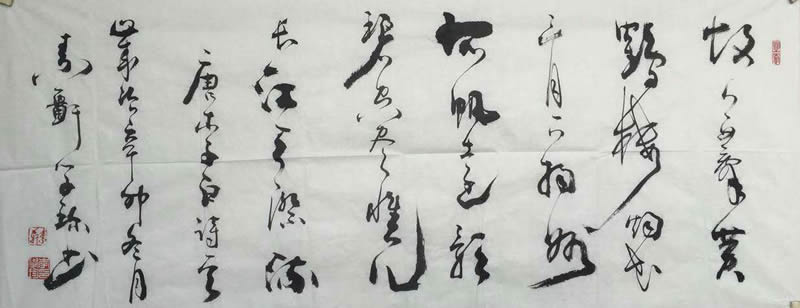 故人西辭黄
鶴樓烟花
三月下揚州
孤帆遠影
碧空尽惟見
長江天際流
唐李白詩
辛卯冬月
书